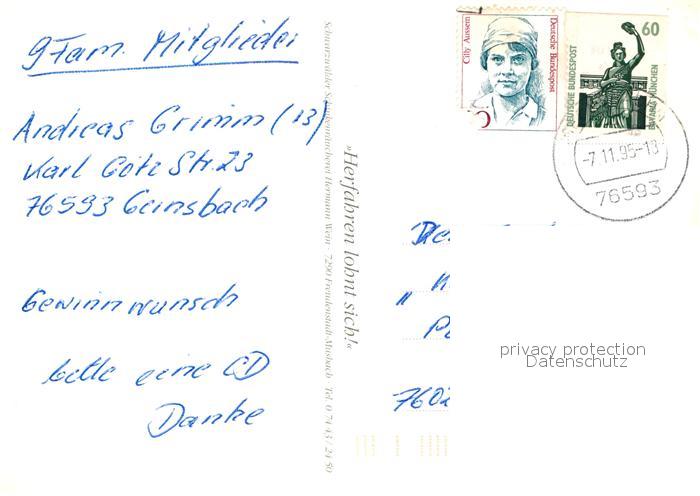 9 Fam. Mitglieder
Andreas Grimm (13)
Karl Götz Str. 23
76593 Gernsbach
Gewinnwunsch
bitte eine CD
Danke
Schwarzwälder Schinkenräucherei Hermann Wein · 7290 Freudenstadt-Musbach Tel. 0 74 43 / 24 50
»Herfahren lohnt sich!«
Cilly Aussem
Deutsche Bundespost
5
60
DEUTSCHE BUNDESPOST
BAVARIA MÜNCHEN
-7.11.95-18
76593
"
7602
privacy protection
Datenschutz